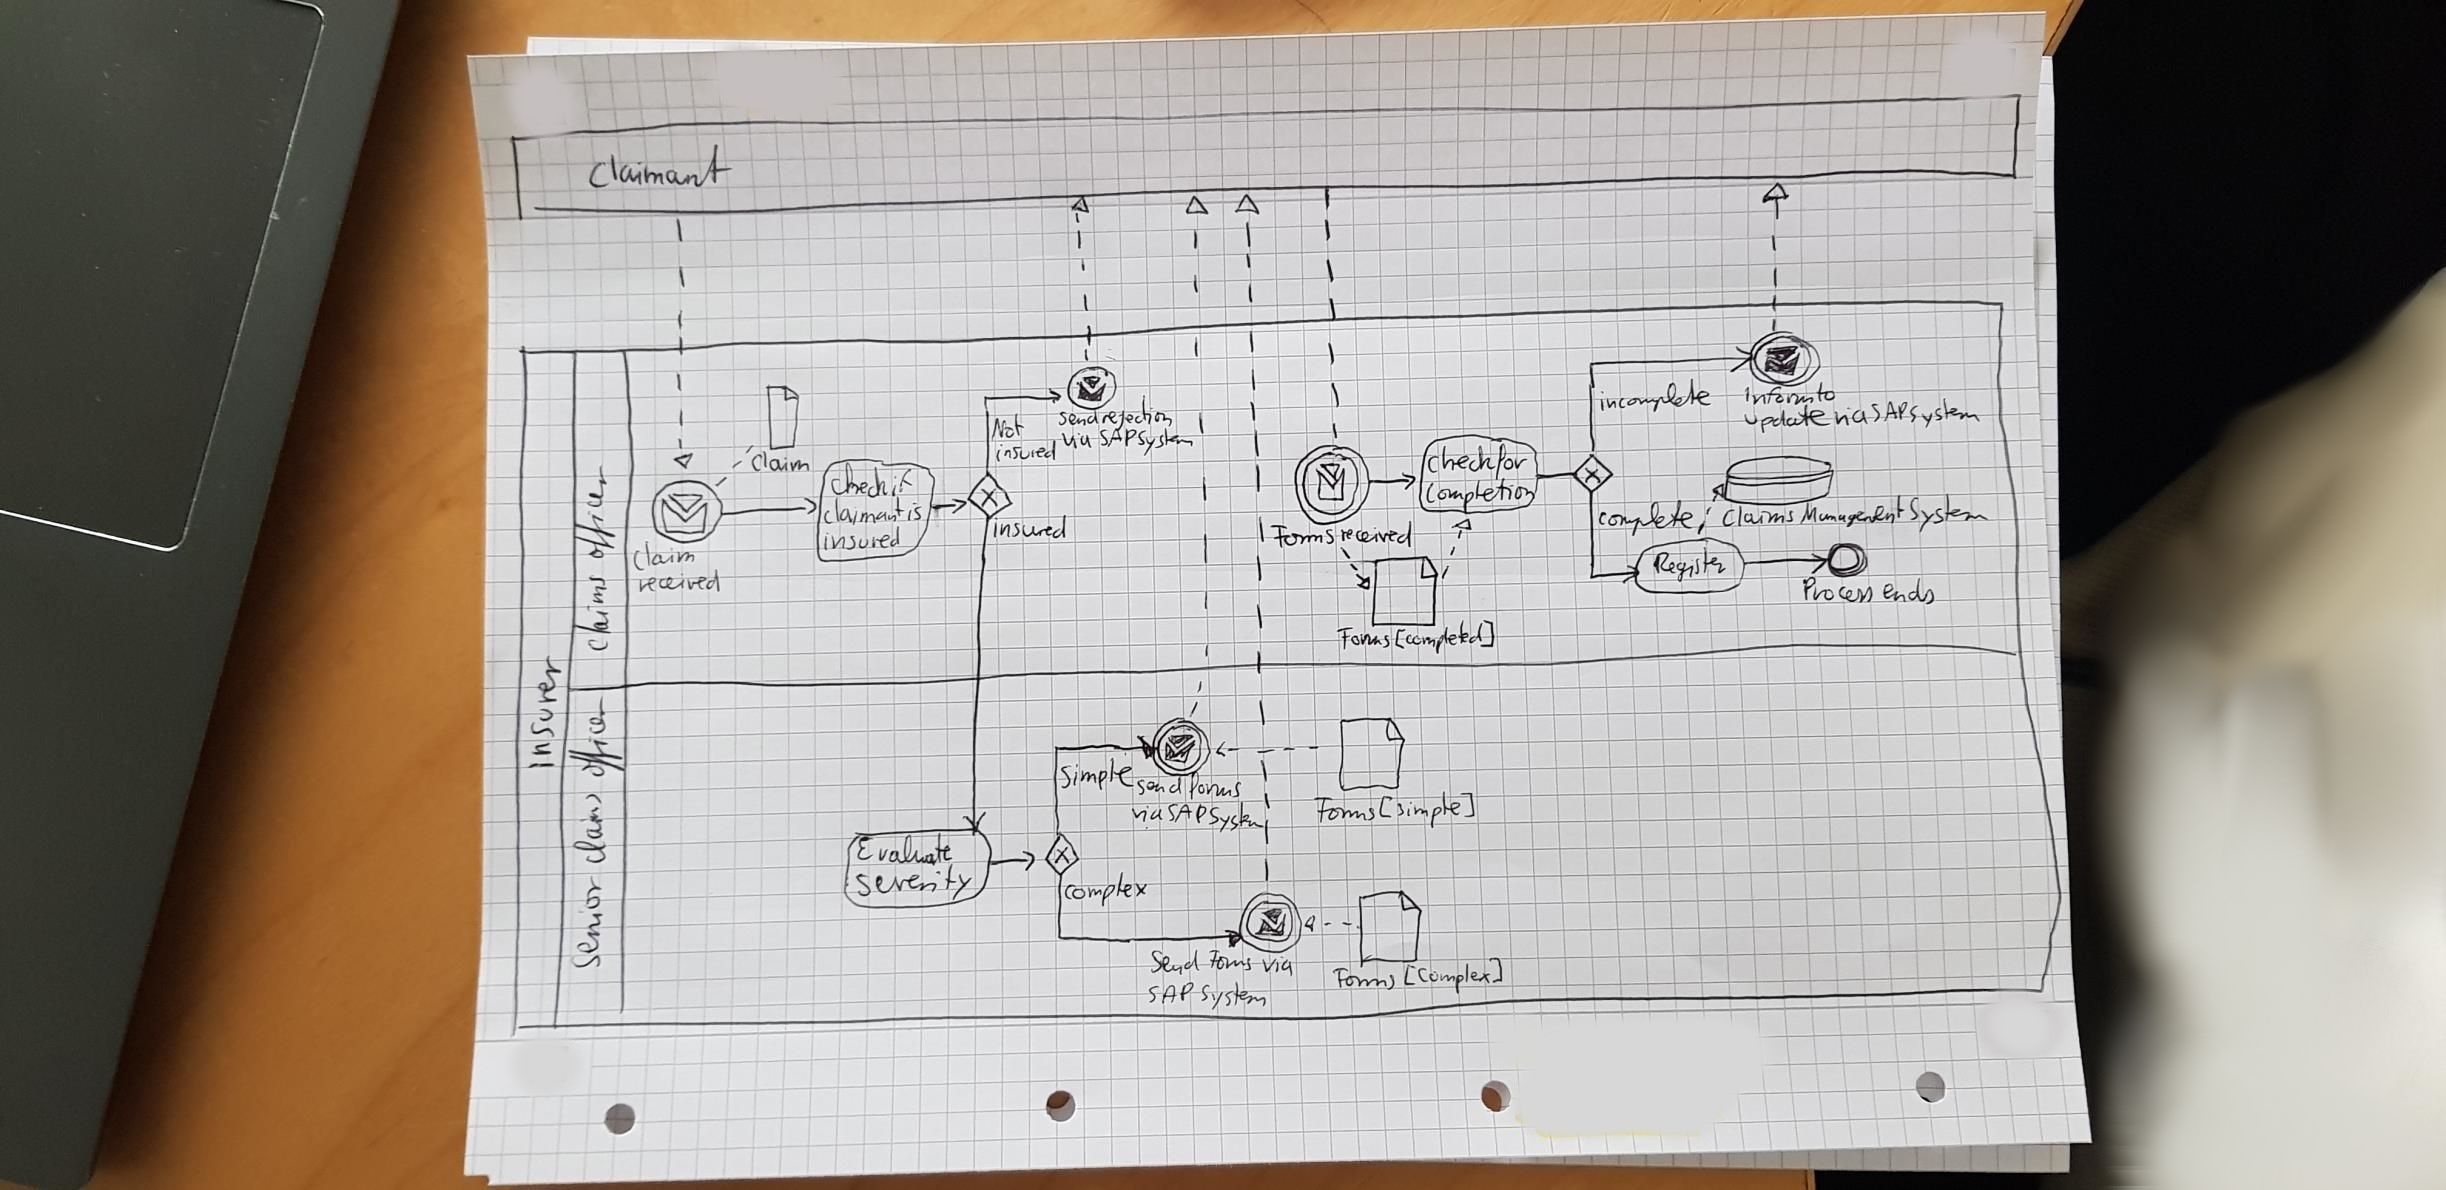 Claimant
Insurer
claims officer
Senior claims officer
Claim
Claim
received
Check if
claimant is
insured
X
Not
insured
insured
send rejection
via SAP System
Forms received
Check for
completion
Forms [completed]
X
incomplete
Inform to
update via SAP System
complete
Claims Management System
Register
Process ends
Evaluate
severity
X
Simple
send forms
via SAP System
Forms [simple]
complex
Send Forms via
SAP System
Forms [Complex]